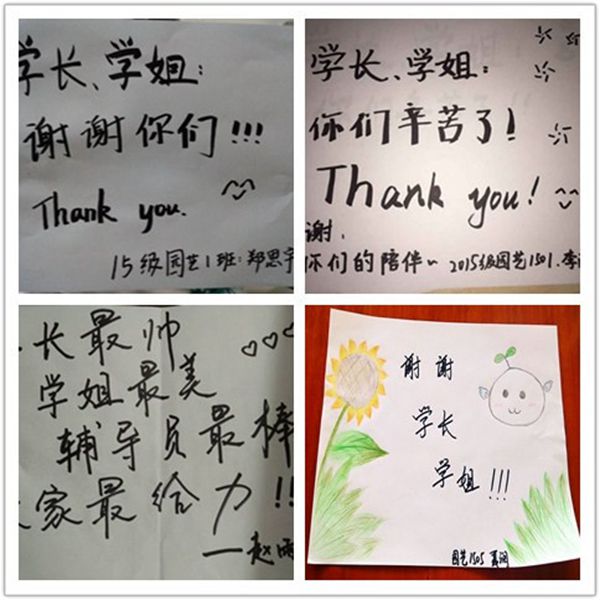 学长、学姐:
谢谢你们!!!
Thank you.
15级园艺1班:郑思宇
学长、学姐:
你们辛苦了!
Thank you!
谢,
你们的陪伴~ 2015级园艺1501.李
长最帅
学姐最美
辅导员最棒
家最给力!!
——赵雨
谢谢
学长
学姐!!!
园艺1505